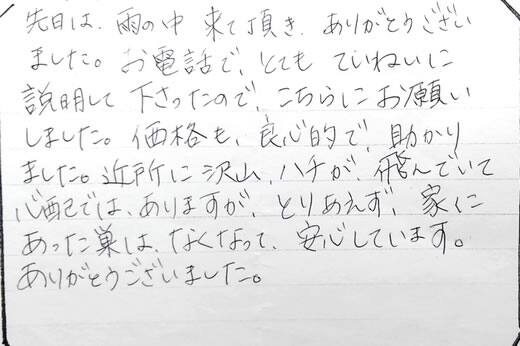 先日は、雨の中 来て頂き、ありがとうござい
ました。お電話で、とても ていねいに
説明して 下さったので、こちらにお願い
しました。価格も、良心的で、助かり
ました。近所に 沢山、ハチが、飛んでいて
心配では、ありますが、とりあえず、家に
あった巣は、なくなって、安心しています。
ありがとうございました。